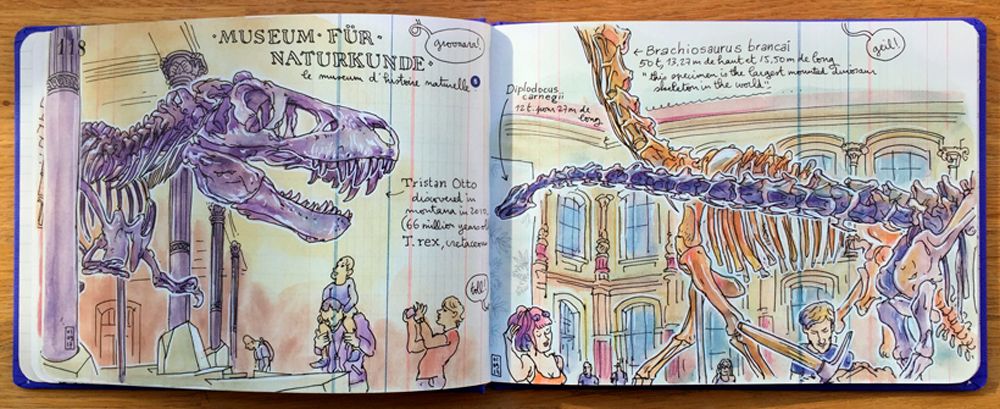 118
·MUSEUM·FÜR·
NATURKUNDE·
le museum d'histoire naturelle
grooaaar!
Tristan Otto
discovered in
montana in 2010.
(66 million years
T. rex, cretaceous
toll!
Diplodocus
carnegii
12t. pour 27m de
long
← Brachiosaurus brancai
50t, 13,27m de haut et 15,50m de long
"this specimen is the largest mounted dinosaur
skeleton in the world"
geil!